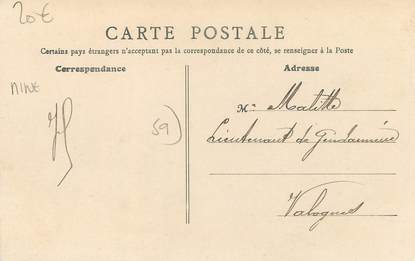 20€
CARTE POSTALE
Certains pays étrangers n'acceptant pas la correspondance de ce côté, se renseigner à la Poste
Correspondance
Adresse
MINE
59
Mr Malitte
Lieutenant de Gendarmerie
Valognes